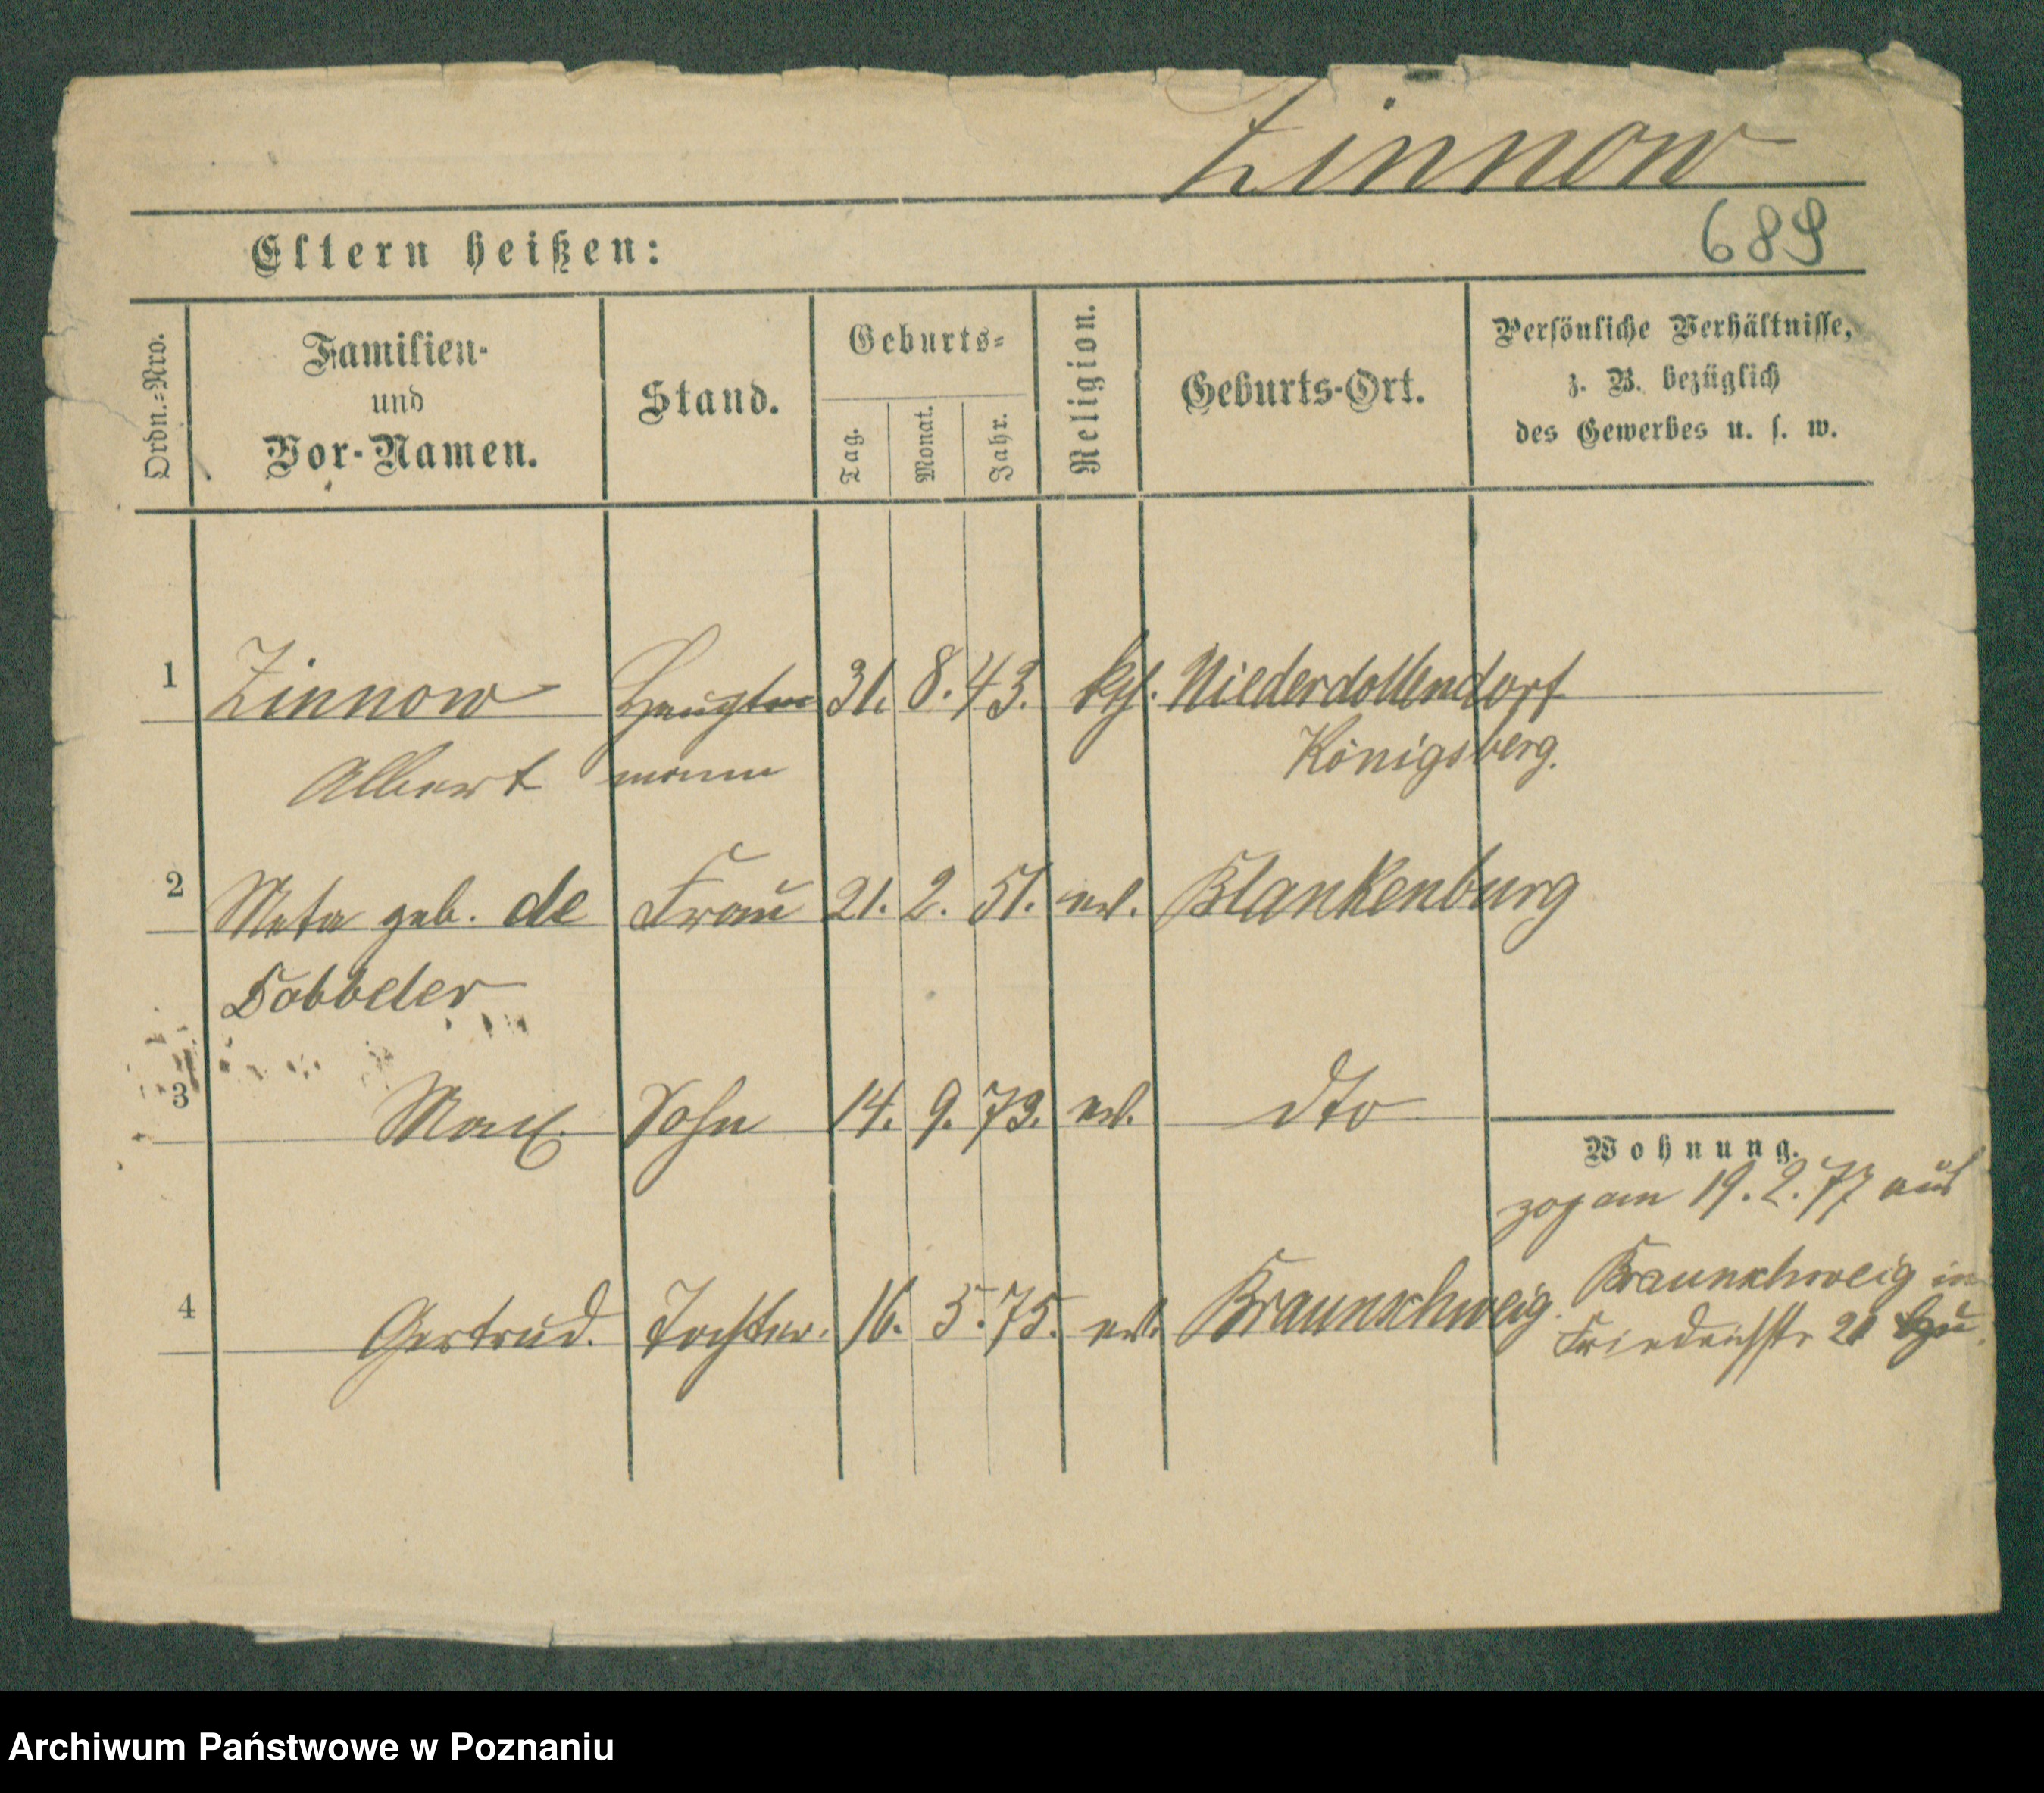 Zinnow
689
Eltern heißen:
Ordn.=Nro.
Familien-
und
Vor-Namen.
Stand.
Geburts=
Tag.
Monat.
Jahr.
Religion.
Geburts-Ort.
Persönliche Verhältnisse,
z. B. bezüglich
des Gewerbes u. s. w.
1 Zinnow Hauptm 31. 8. 43. Niederdollendorf
Albert mann Königsberg.
2 Meta geb. de Frau 21. 2. 51. ev. Blankenburg
Dobbeler
3 Max. Sohn 14. 9. 73. ev. dto
Wohnung.
zog am 19. 2. 77 aus
4 Gertrud. Tochter. 16. 5. 75. ev. Braunschweig.
Braunschweig in
Friedrichstr 21
Archiwum Państwowe w Poznaniu